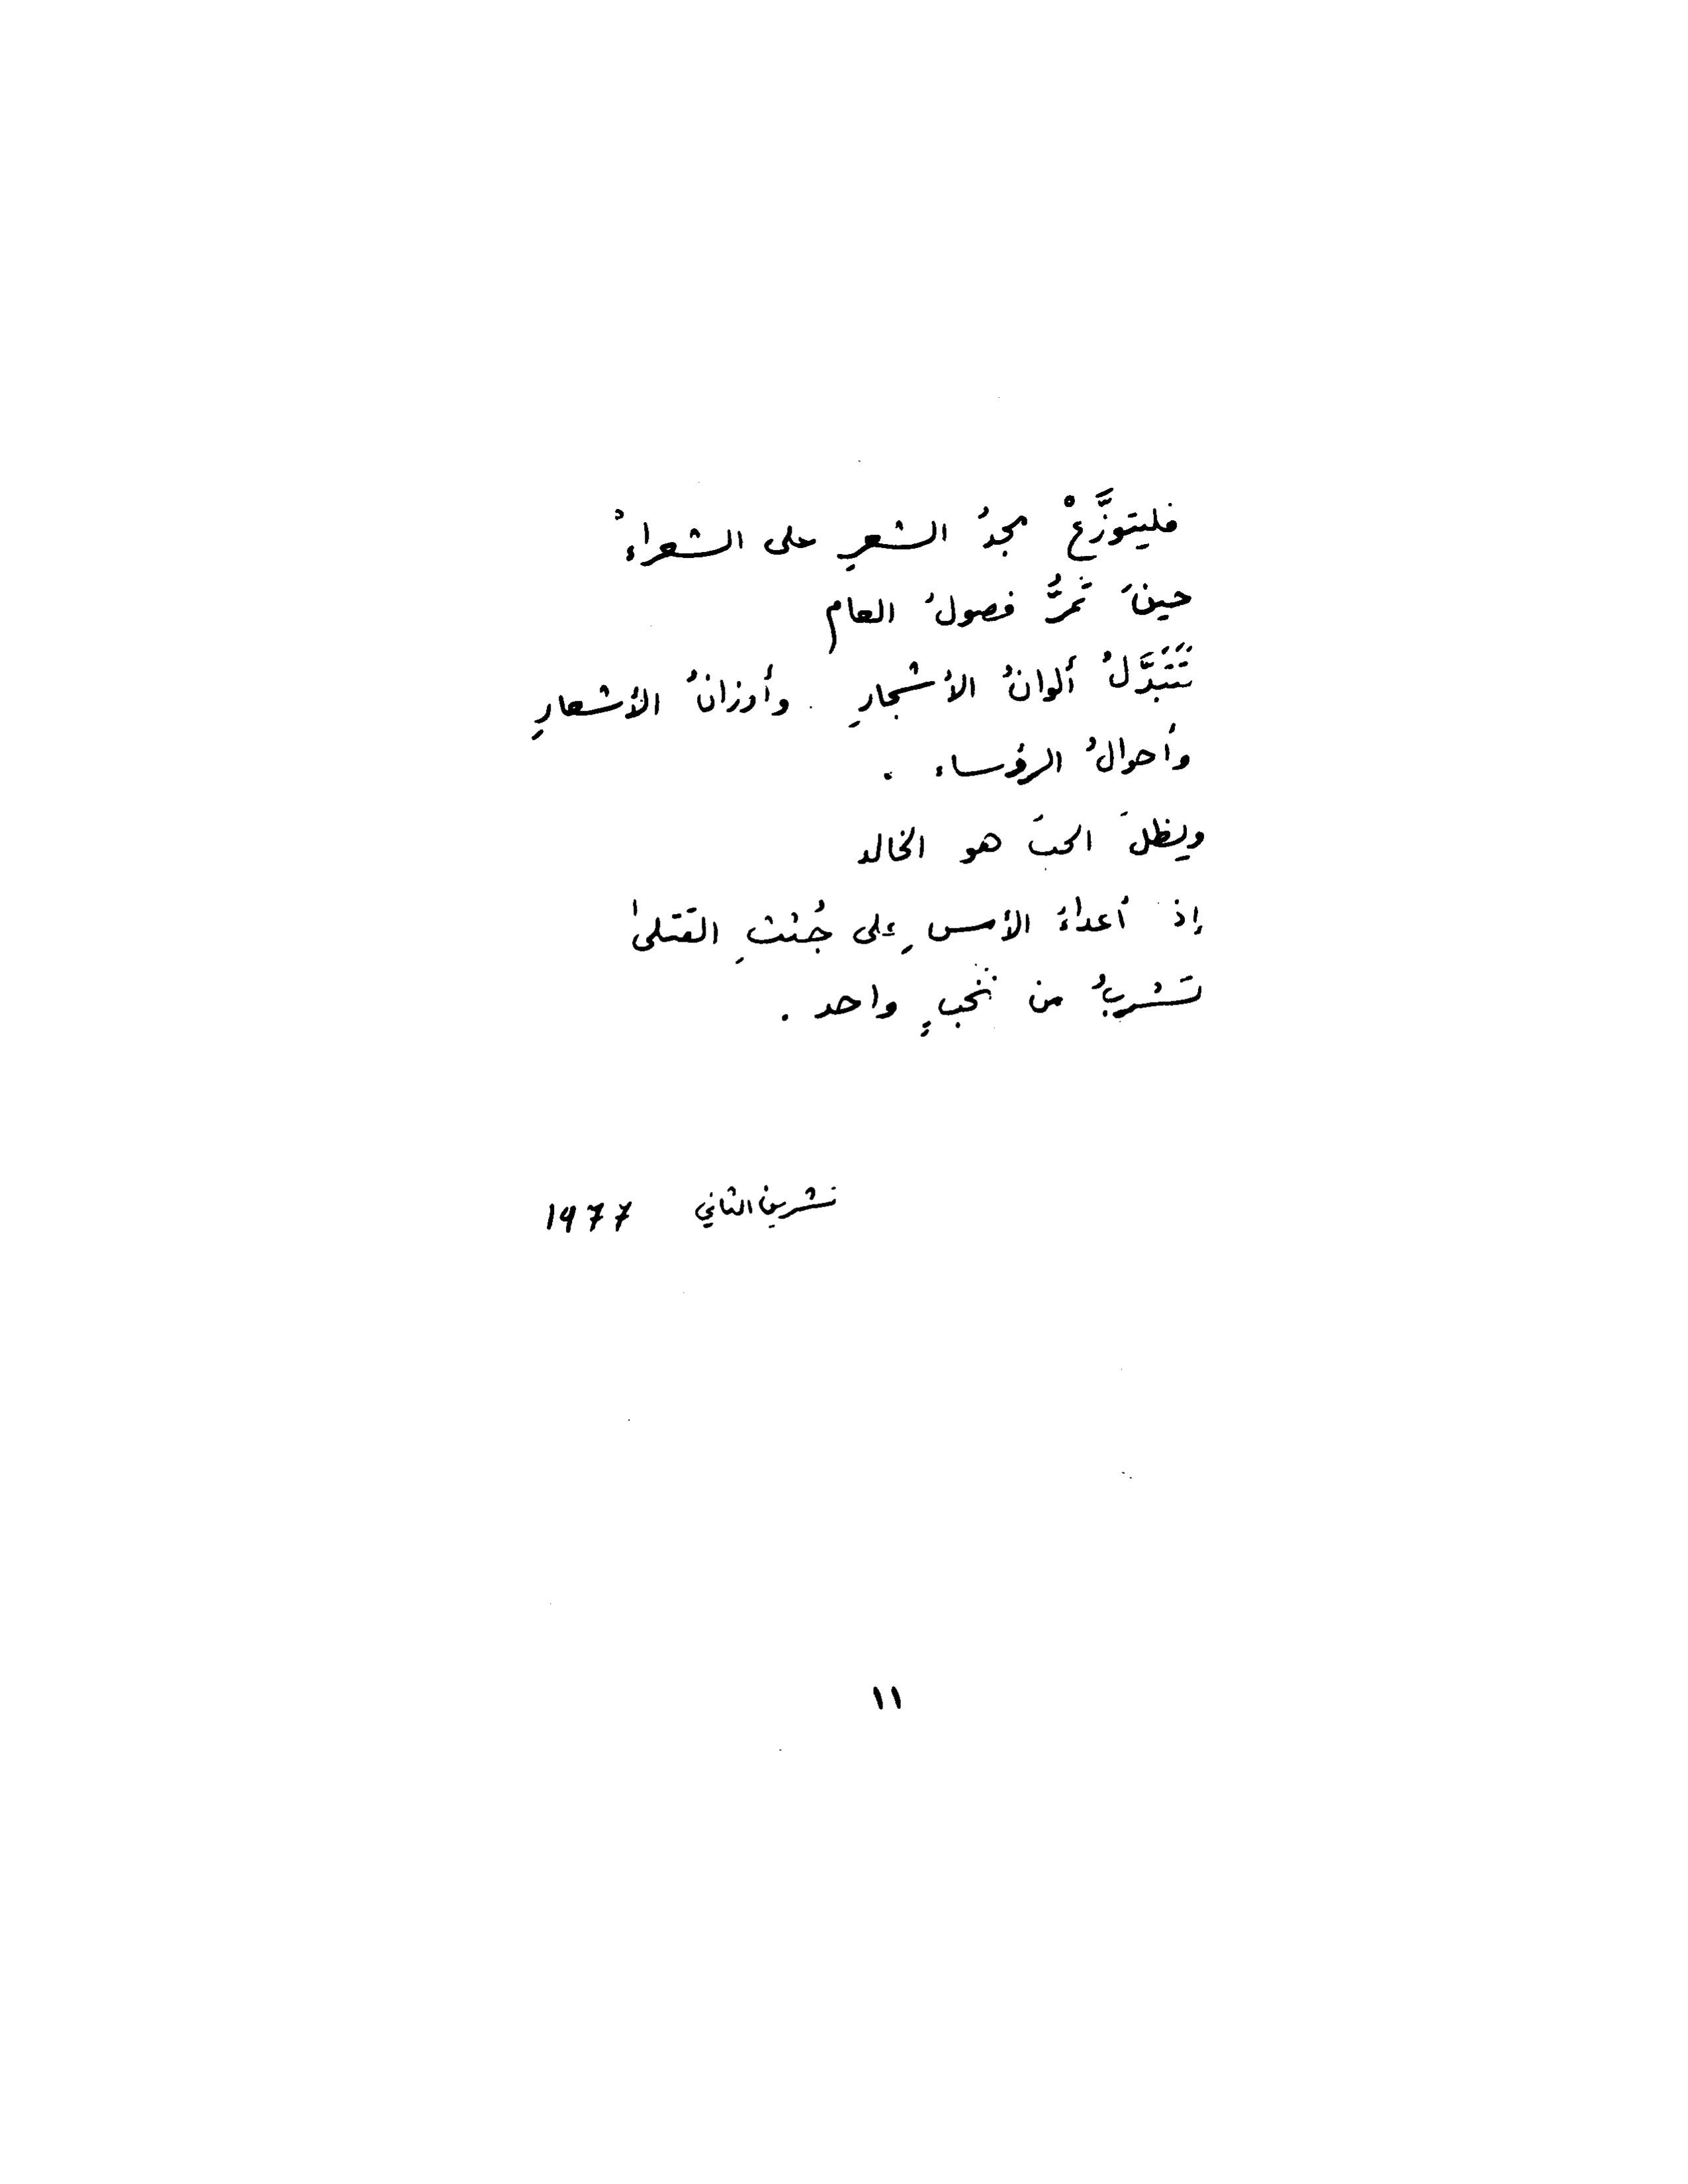 فليتوزَّعْ مجدُ الشعرِ على الشعراءْ
حينَ تمرُّ فصولُ العام
تَتَبَدَّلُ ألوانُ الأشجارِ . وأوزانُ الأشعارِ
وأحوالُ الرؤساء .
ويظلَ الحبَ هو الخالد
إذ أعداءُ الأمسِ على جُثثِ القتلىٰ
تَشربُ من نخبٍ واحد .
تشرين الثاني 1977
١١